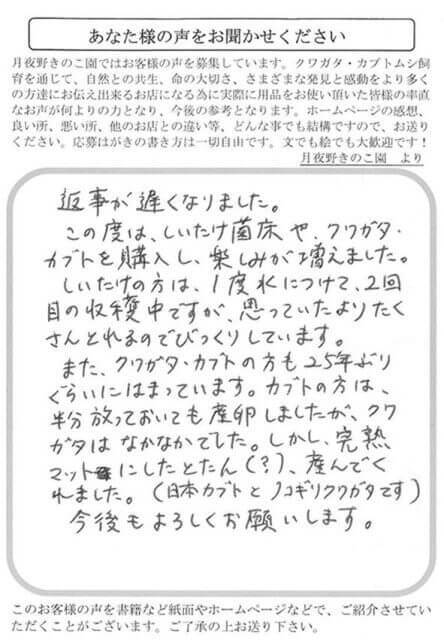 あなた様の声をお聞かせください
月夜野きのこ園ではお客様の声を募集しています。クワガタ・カブトムシ飼
育を通じて、自然との共生、命の大切さ、さまざまな発見と感動をより多く
の方達にお伝え出来るお店になる為に実際に用品をお使い頂いた皆様の率直
なお声が何よりの力となり、今後の参考となります。ホームページの感想、
良い所、悪い所、他のお店との違い等、どんな事でも結構ですので、お送り
ください。応募はがきの書き方は一切自由です。文でも絵でも大歓迎です！
月夜野きのこ園　より
返事が遅くなりました。
この度は、しいたけ菌床や、クワガタ・
カブトを購入し、楽しみが増えました。
しいたけの方は、１度水につけて、２回
目の収穫中ですが、思っていたよりたく
さんとれるのでびっくりしています。
また、クワガタ・カブトの方も２５年ぶり
ぐらいにはまっています。カブトの方は、
半分放っておいても産卵しましたが、クワ
ガタはなかなかでした。しかし、完熟
マットにしたとたん（？）、産んでく
れました。（日本カブトとノコギリクワガタです）
今後もよろしくお願いします。
このお客様の声を書籍など紙面やホームページなどで、ご紹介させてい
ただくことがございます。ご了承の上お送り下さい。